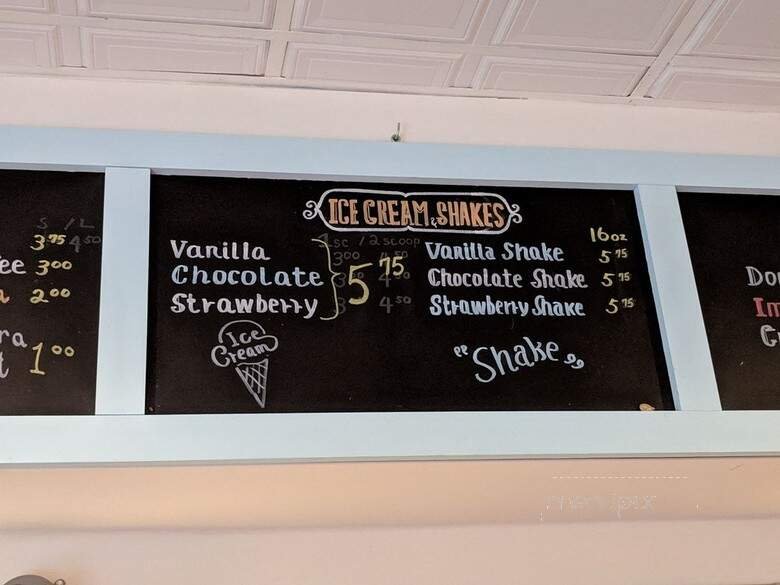 S / L
3 75 4 50
ee 3 00
a 2 00
ra
t 1 00
ICE CREAM & SHAKES
1 sc / 2 scoop
Vanilla 3 00 4 50
Chocolate 5 75
Strawberry 4 50
Ice
Cream
16oz
Vanilla Shake 5 75
Chocolate Shake 5 75
Strawberry Shake 5 75
"Shake"
Do
Im
G